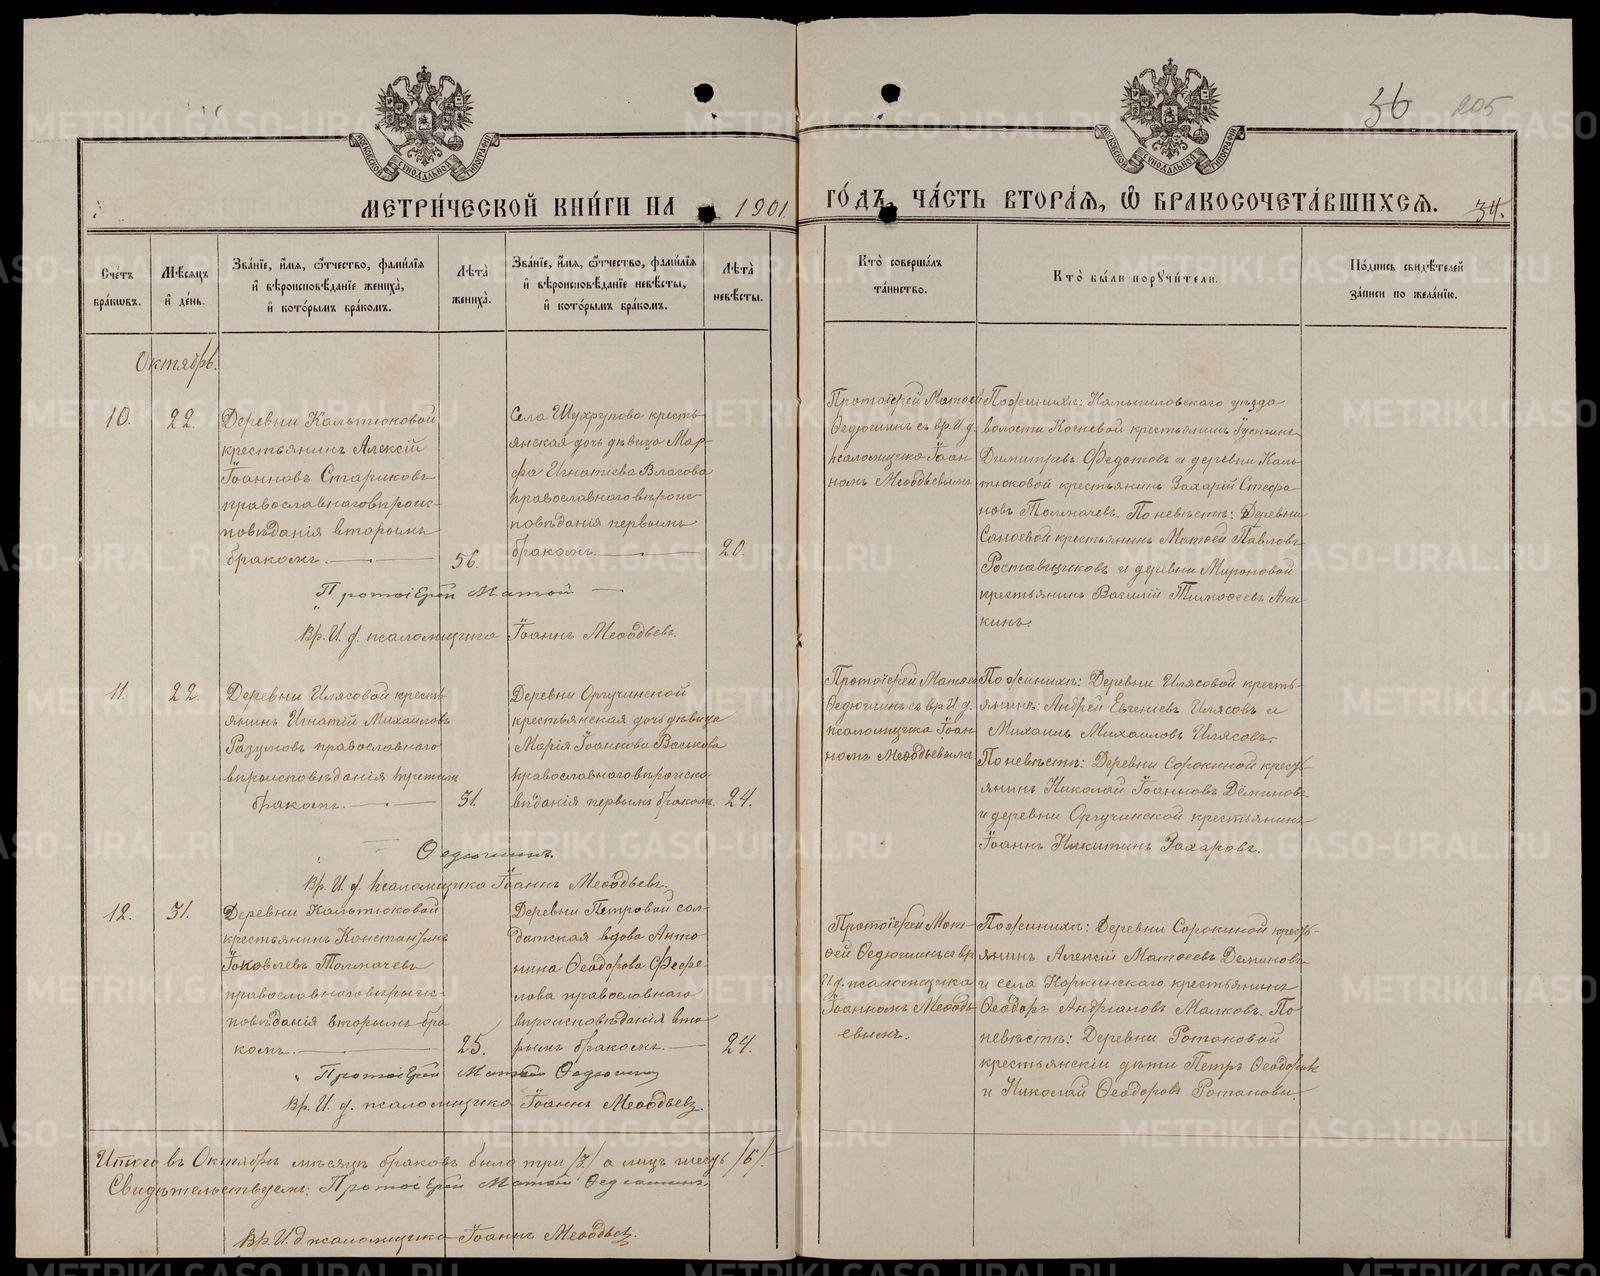 36
205
МЕТРИ́ЧЕСКОЙ КНИ́ГИ НА 1901
ГО́ДЪ, ЧА́СТЬ ВТОРА́Я, Ѽ БРАКОСОЧЕТА́ВШИХСЯ. 34.
МОСКОВСКОЙ СУНОДАЛЬНОЙ ТИПОГРАФІИ
МОСКОВСКОЙ СУНОДАЛЬНОЙ ТИПОГРАФІИ
Сче́тъ
бра́ковъ.
Мѣсяцъ
и де́нь.
Зва́нїе, и́мя, ѻ́тчество, фами́лїя
и вѣроисповѣданїе жениха̀,
и кото́рымъ бра́комъ.
Лѣта̀
жениха̀.
Зва́нїе, и́мя, ѻ́тчество, фами́лїя
и вѣроисповѣданїе невѣсты,
и кото́рымъ бра́комъ.
Лѣта̀
невѣсты.
Кто̀ соверша́лъ
та́инство.
Кто̀ бы́ли поручи́тели.
По́дпись свидѣтелей
за́писи по жела́нїю.
Октябрь.
10.
22.
Деревни Кальтюковой
крестьянинъ Алексій
Іоанновъ Стариковъ
православнаго вѣроис-
повѣданія вторымъ
бракомъ.
56.
Села Шухрупова кресть-
янская дочь дѣвица Мар-
фа Игнатіева Власова
православнаго вѣроис-
повѣданія первымъ
бракомъ.
20.
Протоіерей Матѳей
Ѳедюшинъ съ вр. И. д.
псаломщика Іоан-
номъ Меѳодьевымъ
По женихѣ: Камышловскаго уѣзда
волости Кочневой крестьянинъ Густинъ
Димитріевъ Федотовъ и деревни Каль-
тюковой крестьянинъ Захарій Стефа-
новъ Толмачевъ. По невѣстѣ: Деревни
крестьянинъ Матѳей Павловъ
Роставщиковъ и деревни Мироновой
крестьянинъ Василій Тимоѳеевъ Ани-
кинъ.
Протоіерей Матѳей
Вр. И. д. псаломщика Іоаннъ Меѳодьевъ.
11.
22.
Деревни Илясовой кресть-
янинъ Игнатій Михаиловъ
Разумовъ православнаго
вѣроисповѣданія третьимъ
бракомъ.
31.
Деревни Ортучинской
крестьянская дочь дѣвица
Марія Іоаннова Васькова
православнаго вѣроиспо-
вѣданія первымъ бракомъ.
24.
Протоіерей Матѳей
Ѳедюшинъ съ вр. И. д.
псаломщика Іоан-
номъ Меѳодьевымъ
По женихѣ: Деревни Илясовой кресть-
янинъ: Андрей Евгеніевъ Илясовъ и
Михаилъ Михаиловъ Илясовъ.
По невѣстѣ: Деревни Сорокиной крест-
янинъ Николай Іоанновъ Дёминовъ
и деревни Ортучинской крестьянинъ
Іоаннъ Никитинъ Захаровъ.
Ѳедюшинъ.
Вр. И. д. псаломщика Іоаннъ Меѳодьевъ.
12.
31.
Деревни Кальтюковой
крестьянинъ Константинъ
Іаковлевъ Толмачевъ
православнаго вѣроис-
повѣданія вторымъ бра-
комъ.
25.
Деревни Петровой сол-
датская вдова Анто-
нина Ѳеодорова Фефе-
лова православнаго
вѣроисповѣданія вто-
рымъ бракомъ.
24.
Протоіерей Мат-
ѳей Ѳедюшинъ съ вр.
И. д. псаломщика
Іоанномъ Меѳодь-
евымъ.
По женихѣ: Деревни Сорокиной крест-
янинъ Алексій Матѳеевъ Деминовъ
и села Коркинскаго крестьянинъ
Ѳеодоръ Андріановъ Малковъ. По
невѣстѣ: Деревни Ротановой
крестьянскіи дѣти Петръ Ѳеодоровъ
и Николай Ѳеодоровъ Ротановы.
Протоіерей Матѳей Ѳедюшинъ
Вр. И. д. псаломщика Іоаннъ Меѳодьевъ.
Итого въ Октябрѣ мѣсяцѣ браковъ было три /3/ а лицъ шесть /6/.
Свидѣтельствуемъ: Протоіерей Матѳей Ѳедюшинъ.
Вр. И. д. псаломщика Іоаннъ Меѳодьевъ.
METRIKI.GASO-URAL.RU